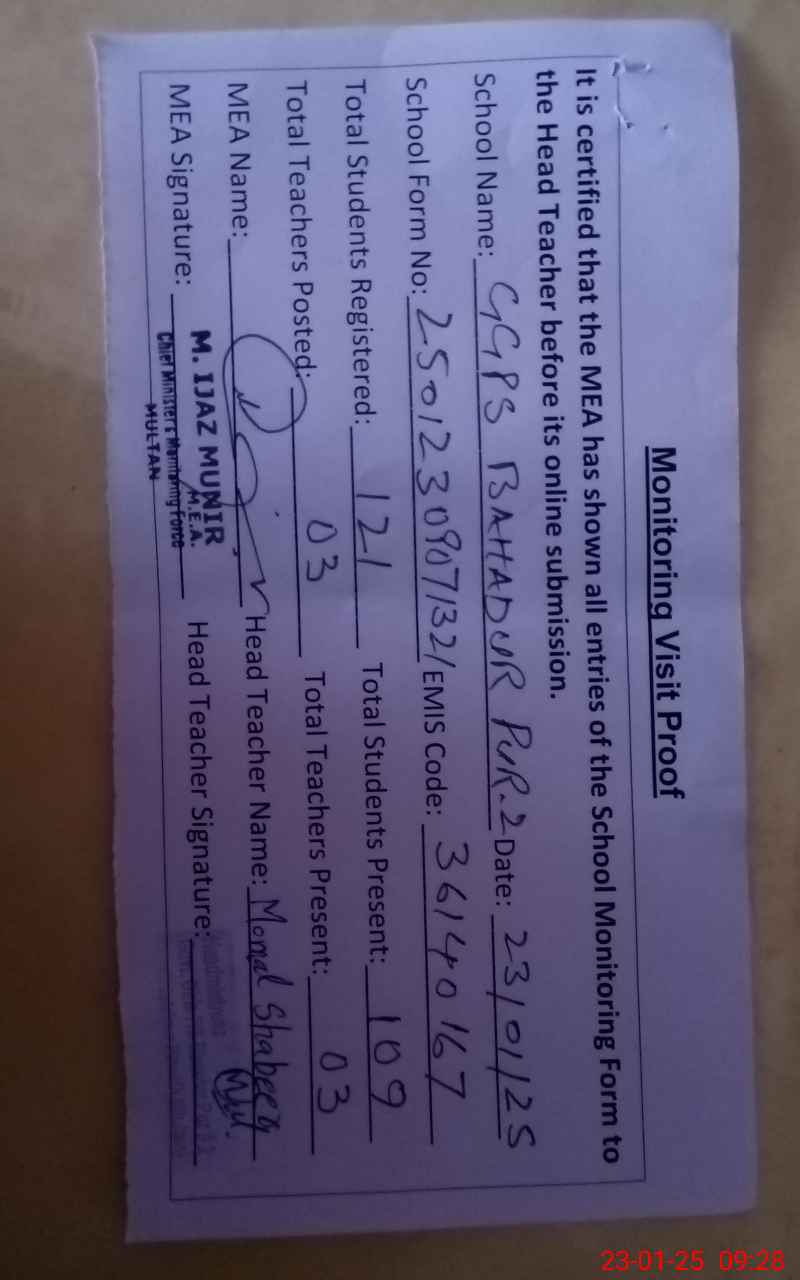 Monitoring Visit Proof
It is certified that the MEA has shown all entries of the School Monitoring Form to
the Head Teacher before its online submission.
School Name: GGPS BAHADUR PUR.2 Date: 23/01/25
School Form No: 2501230907132/ EMIS Code: 36140167
Total Students Registered: 121 Total Students Present: 109
Total Teachers Posted: 03 Total Teachers Present: 03
MEA Name: Head Teacher Name: Momal Shabeer
MEA Signature: Head Teacher Signature:
M. IJAZ MUNIR
M.E.A.
Chief Minister's Monitoring Force
MULTAN
23-01-25 09:28